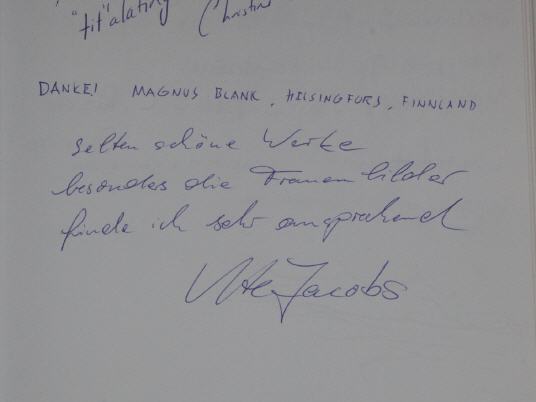 "tit"alating Christine
DANKE! MAGNUS BLANK, HELSINGFORS, FINNLAND
selten schöne Werke
besonders die Frauenbilder
finde ich sehr ansprechend
Ute Jacobs